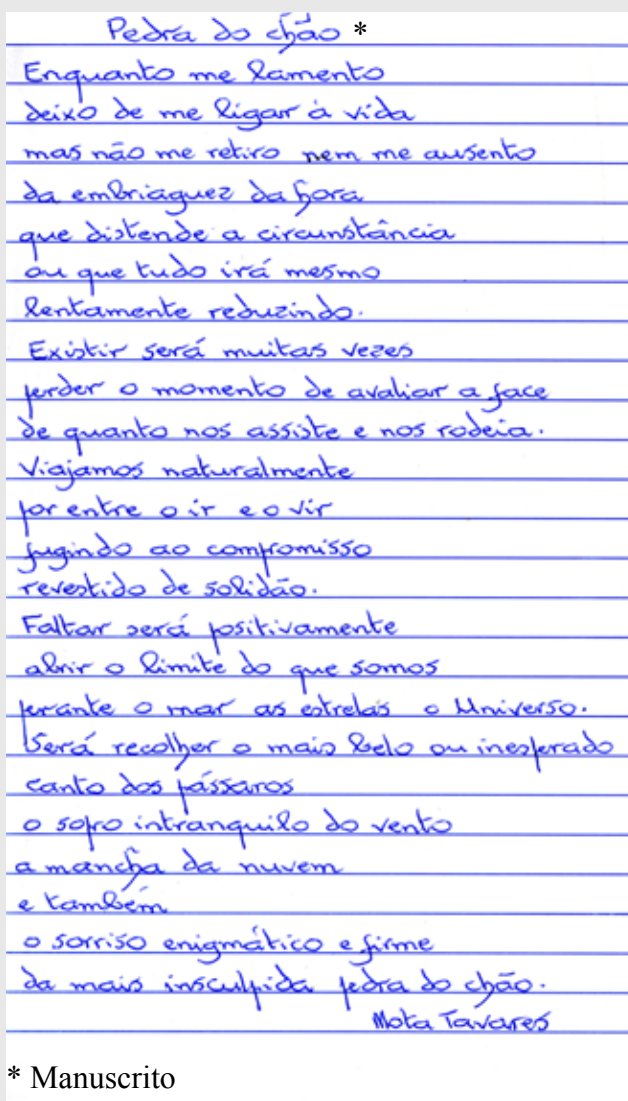 Pedra do chão *
Enquanto me lamento
deixo de me ligar à vida
mas não me retiro nem me ausento
da embriaguez da hora
que distende a circunstância
ou que tudo irá mesmo
lentamente reduzindo.
Existir será muitas vezes
perder o momento de avaliar a face
de quanto nos assiste e nos rodeia.
Viajamos naturalmente
por entre o ir e o vir
fugindo ao compromisso
revestido de solidão.
Faltar será positivamente
abrir o limite do que somos
perante o mar as estrelas o Universo.
Será recolher o mais belo ou inesperado
canto dos pássaros
o sopro intranquilo do vento
a mancha da nuvem
e também
o sorriso enigmático e firme
da mais insculpida pedra do chão.
Mota Tavares
* Manuscrito